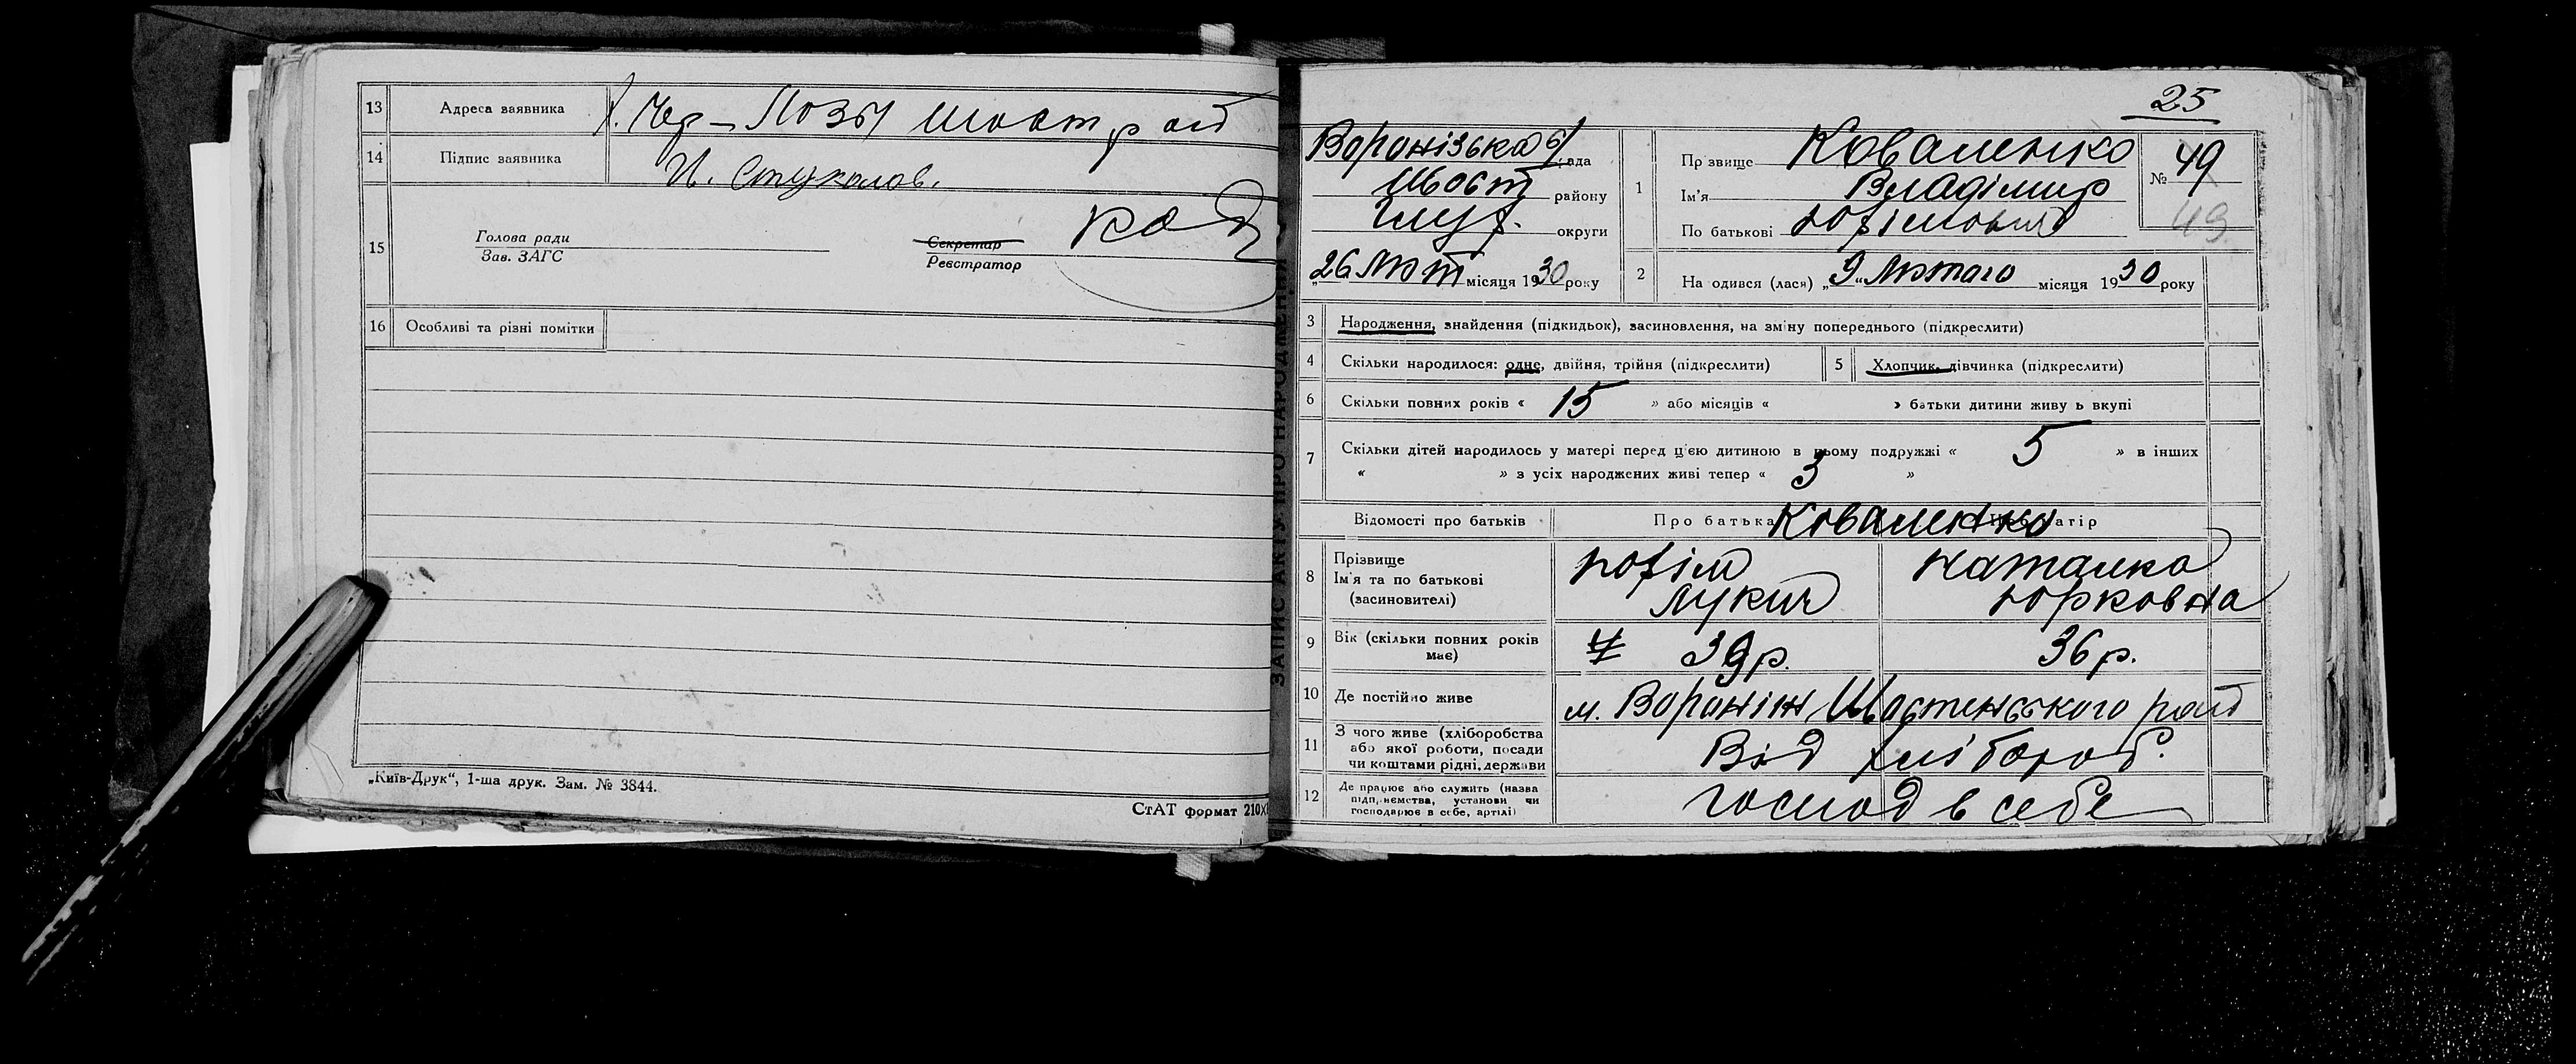 13 Адреса заявника х. Чер-Лозы Шост рай
14 Підпис заявника И. Стукалов.
15 Голова ради
Зав. ЗАГС
Секретар
Реєстратор
16 Особливі та різні помітки
„Київ-Друк“, 1-ша друк. Зам. № 3844.
СтАТ формат 210х
ЗАПИС АКТУ ПРО НАРОДЖЕННЯ
25
Воронізька с/рада
Шост району
Глух. округи
„26 Лют місяця 1930 року
1 Прізвище Коваленко
Ім'я Владімир
По батькові Юхімович
№ 49
49
2 На одився (лася) „9“ Лютого місяця 1930 року
3 Народження, знайдення (підкидьок), засиновлення, на зміну попереднього (підкреслити)
4 Скільки народилося: одне, двійня, трійня (підкреслити)
5 Хлопчик, дівчинка (підкреслити)
6 Скільки повних років « 15 » або місяців « » батьки дитини живу ь вкупі
7 Скільки дітей народилось у матері перед ц'єю дитиною в цьому подружжі « 5 » в інших
« » з усіх народжених живі тепер « 3 »
Відомості про батьків Про батька Коваленко Про матір
8 Прізвище
Ім'я та по батькові
(засиновителі)
Юхім
Лукич
Наталка
Юрковна
9 Вік (скільки повних років
має)
39 р.
36 р.
10 Де постійно живе м. Вороніж, Шостенського рай
11 З чого живе (хліборобства
або якої роботи, посади
чи коштами рідні, держави
Від хлібороб.
12 Де працює або служить (назва
підприємства, установи чи
господарює в себе, артілі)
господ в себе